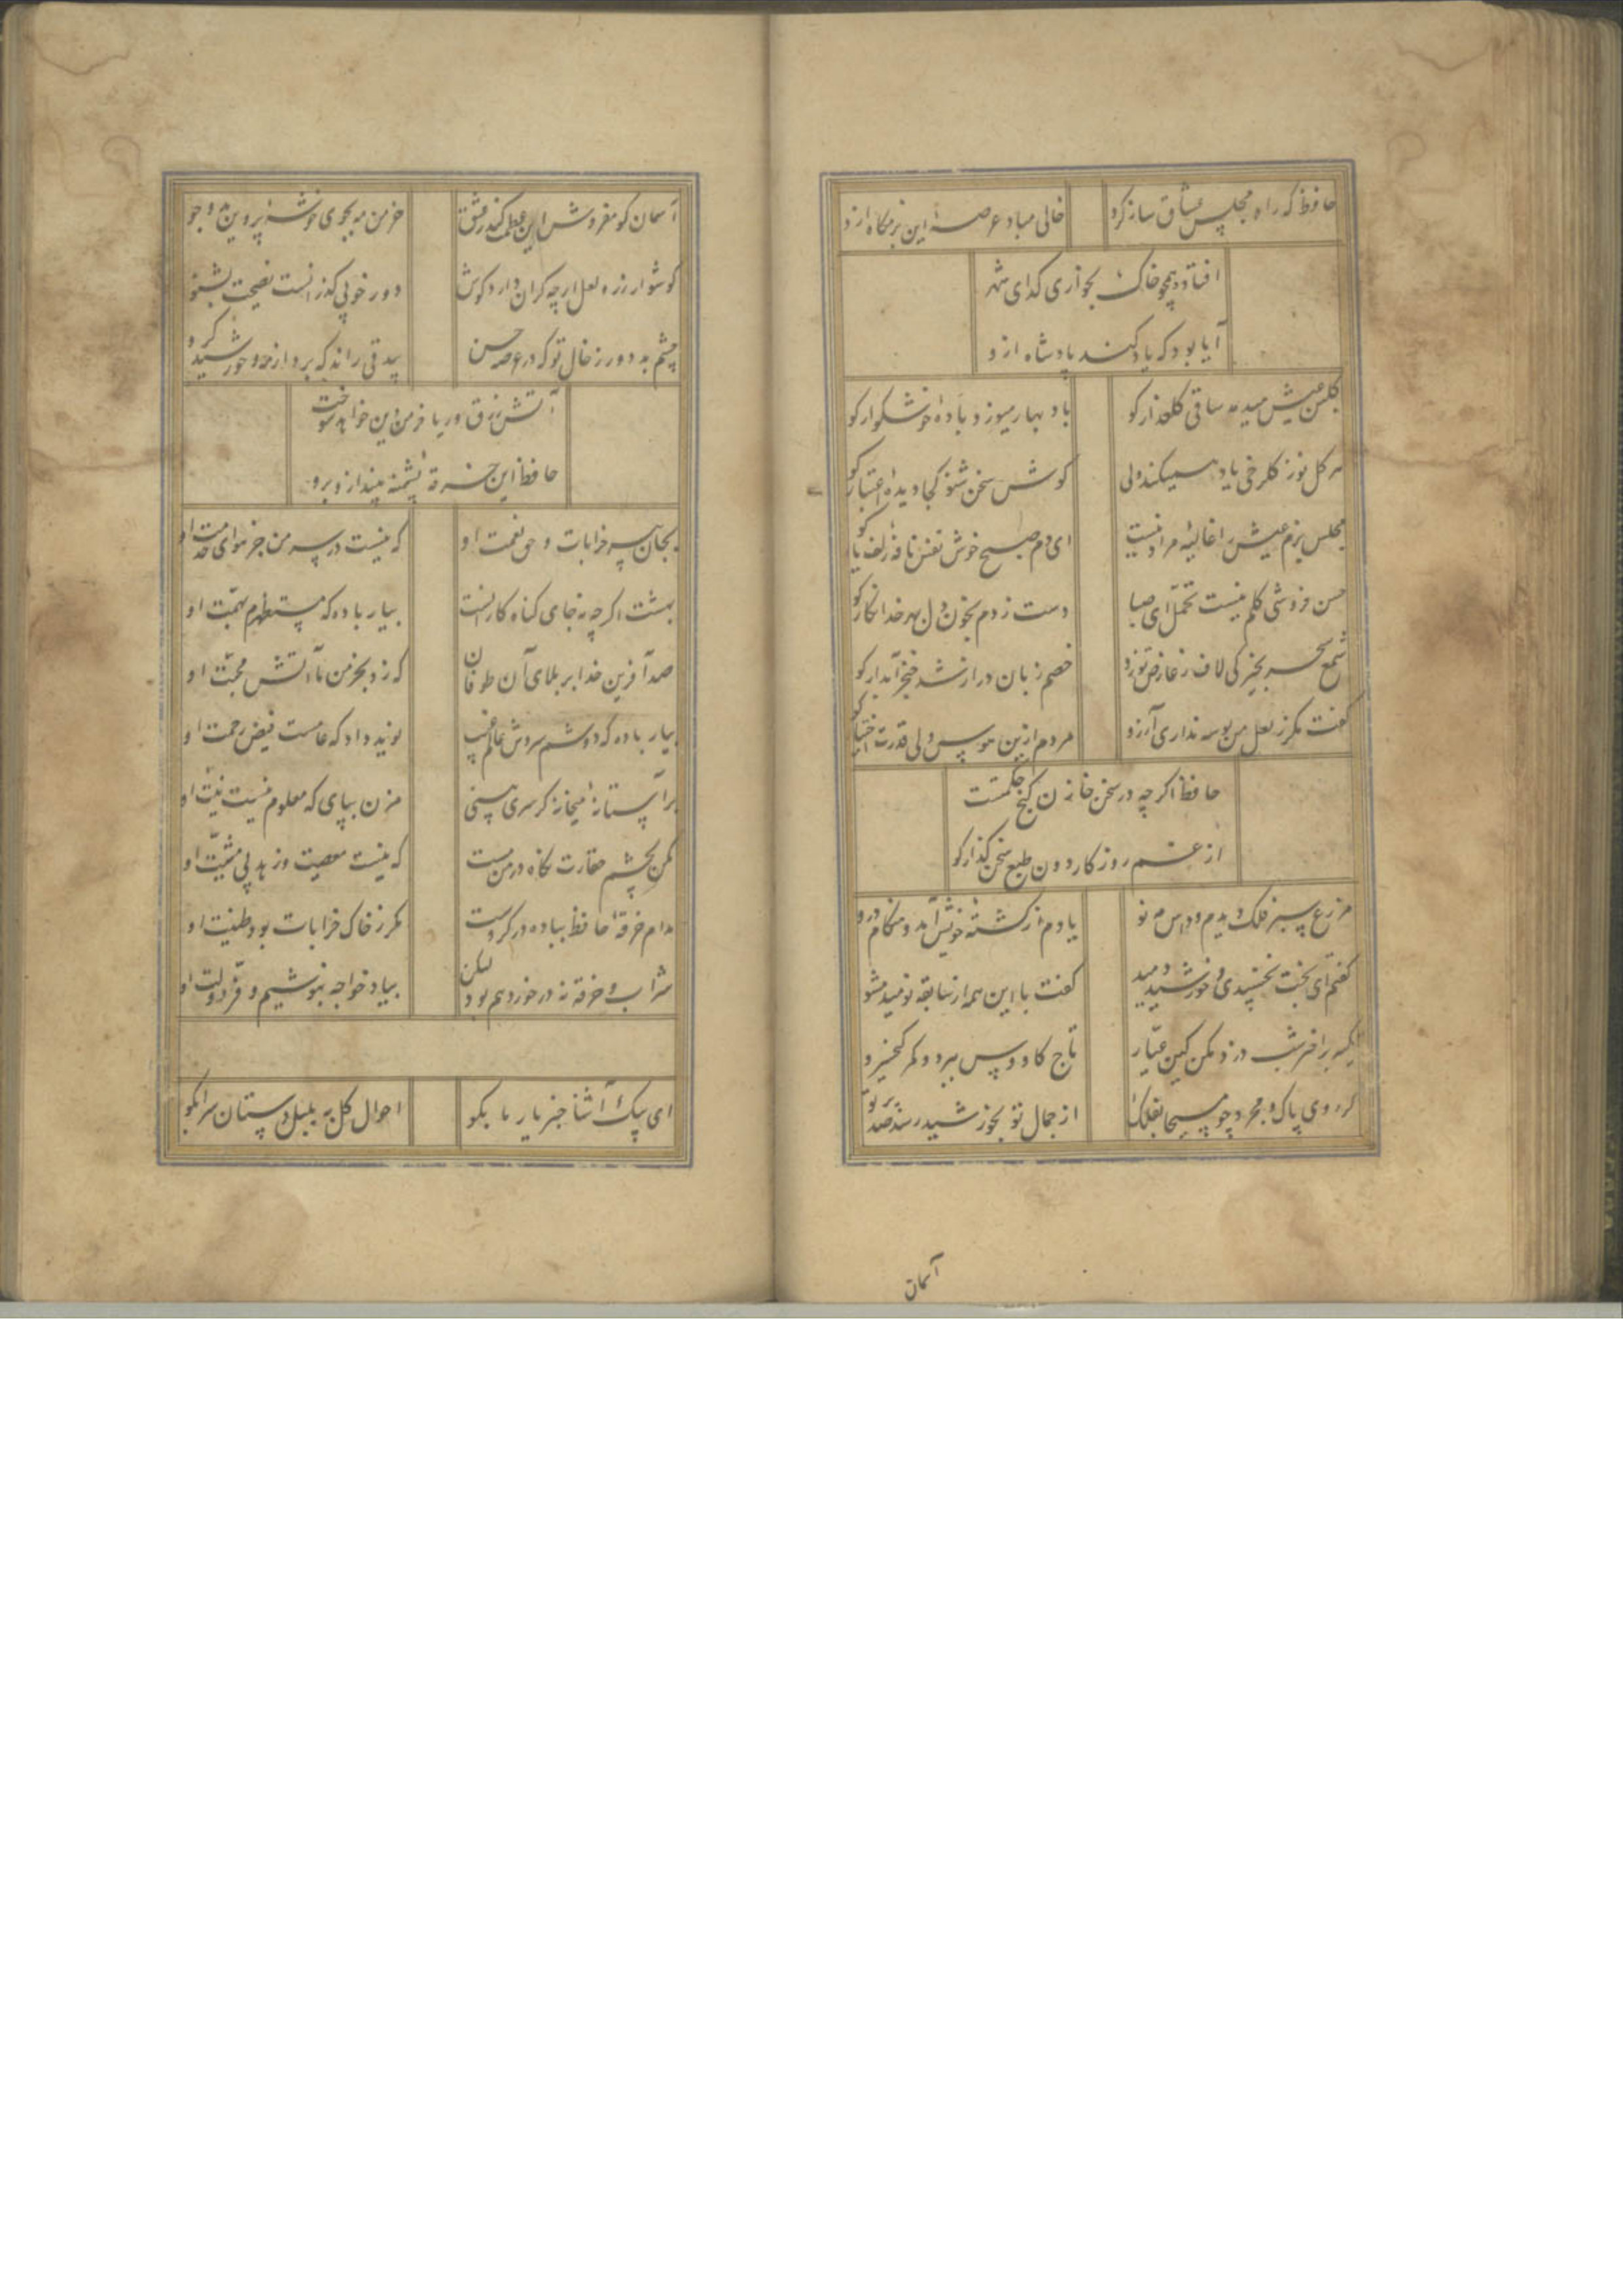 حافظ که راه مجلس عشاق ساز کرد خالی مباد عرصه این بزمگاه ازو
افتاده همچو خاک بخواری گدای شهر
آیا بود که یاد کند پادشاه ازو
گلبن عیش میدمد ساقی گلعذار کو باد بهار میوزد باده خوشگوار کو
هر گل نو ز گلرخی یاد همیکند ولی گوش سخن شنو کجا دیده اعتبار کو
مجلس بزم عیش را غالیه مراد نیست ای دم صبح خوش نفس نافه زلف یار کو
حسن فروشی گلم نیست تحمل ای صبا دست زدم بخون دل بهر خدا نگار کو
شمع سحر بخیرگی لاف ز عارض تو زد خصم زبان دراز شد خنجر آبدار کو
گفت مگر ز لعل من بوسه نداری آرزو مردم ازین هوس ولی قدرت اختیار کو
حافظ اگر چه در سخن خازن گنج حکمتست
از غم روزگار دون طبع سخن گذار کو
مزرع سبز فلک دیدم و داس مه نو یادم از کشته خویش آمد و هنگام درو
گفتم ای بخت بخسبیدی و خورشید دمید گفت با این همه از سابقه نومید مشو
تکیه بر اختر شب دزد مکن کین عیار تاج کاووس ببرد و کمر کیخسرو
گر روی پاک و مجرد چو مسیحا بفلک از جمال تو بخورشید رسد صد پرتو
آسمان
آسمان کو مفروش این عظمت کندر عشق خرمن مه بجوی خوشه پروین بدو جو
گوشوار زر و لعل ار چه گران دارد گوش دور خوبی گذرانست نصیحت بشنو
چشم بد دور ز خال تو که در عرصه حسن بیدقی راند که برد از مه و خورشید گرو
آتش زرق و ریا خرمن دین خواهد سوخت
حافظ این خرقه پشمینه بینداز و برو
بجان پیر خرابات و حق نعمت او که نیست در سر من جز هوای خدمت او
بهشت اگر چه نه جای گناه کارانست بیار باده که مستظهرم بهمت او
صد آفرین خدا بر بلای آن طوفان که زد بخرمن ما آتش محبت او
بیار باده که دوشم سروش عالم غیب نوید داد که عامست فیض رحمت او
بر آستانه میخانه گر سری بینی مزن بپای که معلوم نیست نیت او
مکن بچشم حقارت نگاه در من مست که نیست معصیت و زهد بی مشیت او
مدام خرقه حافظ بباده در گروست مگر ز خاک خرابات بود طینت او
شراب و خرقه نه در خورد هم بود لیکن بیاد خواجه بنوشیم و فر دولت او
ای پیک آشنا خبر یار ما بگو احوال گل به بلبل دستان سرا بگو